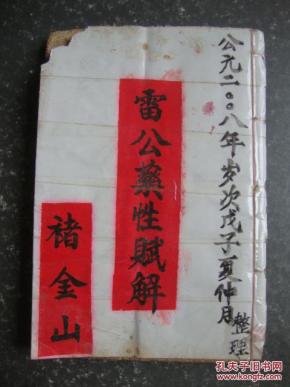 公元二〇〇八年岁次戊子夏仲月整理
雷公藥性賦解
褚金山